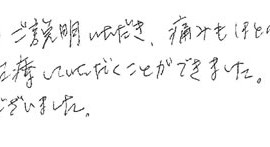 ご説明いただき、痛みもほとの
療していただくことができました。
ざいました。